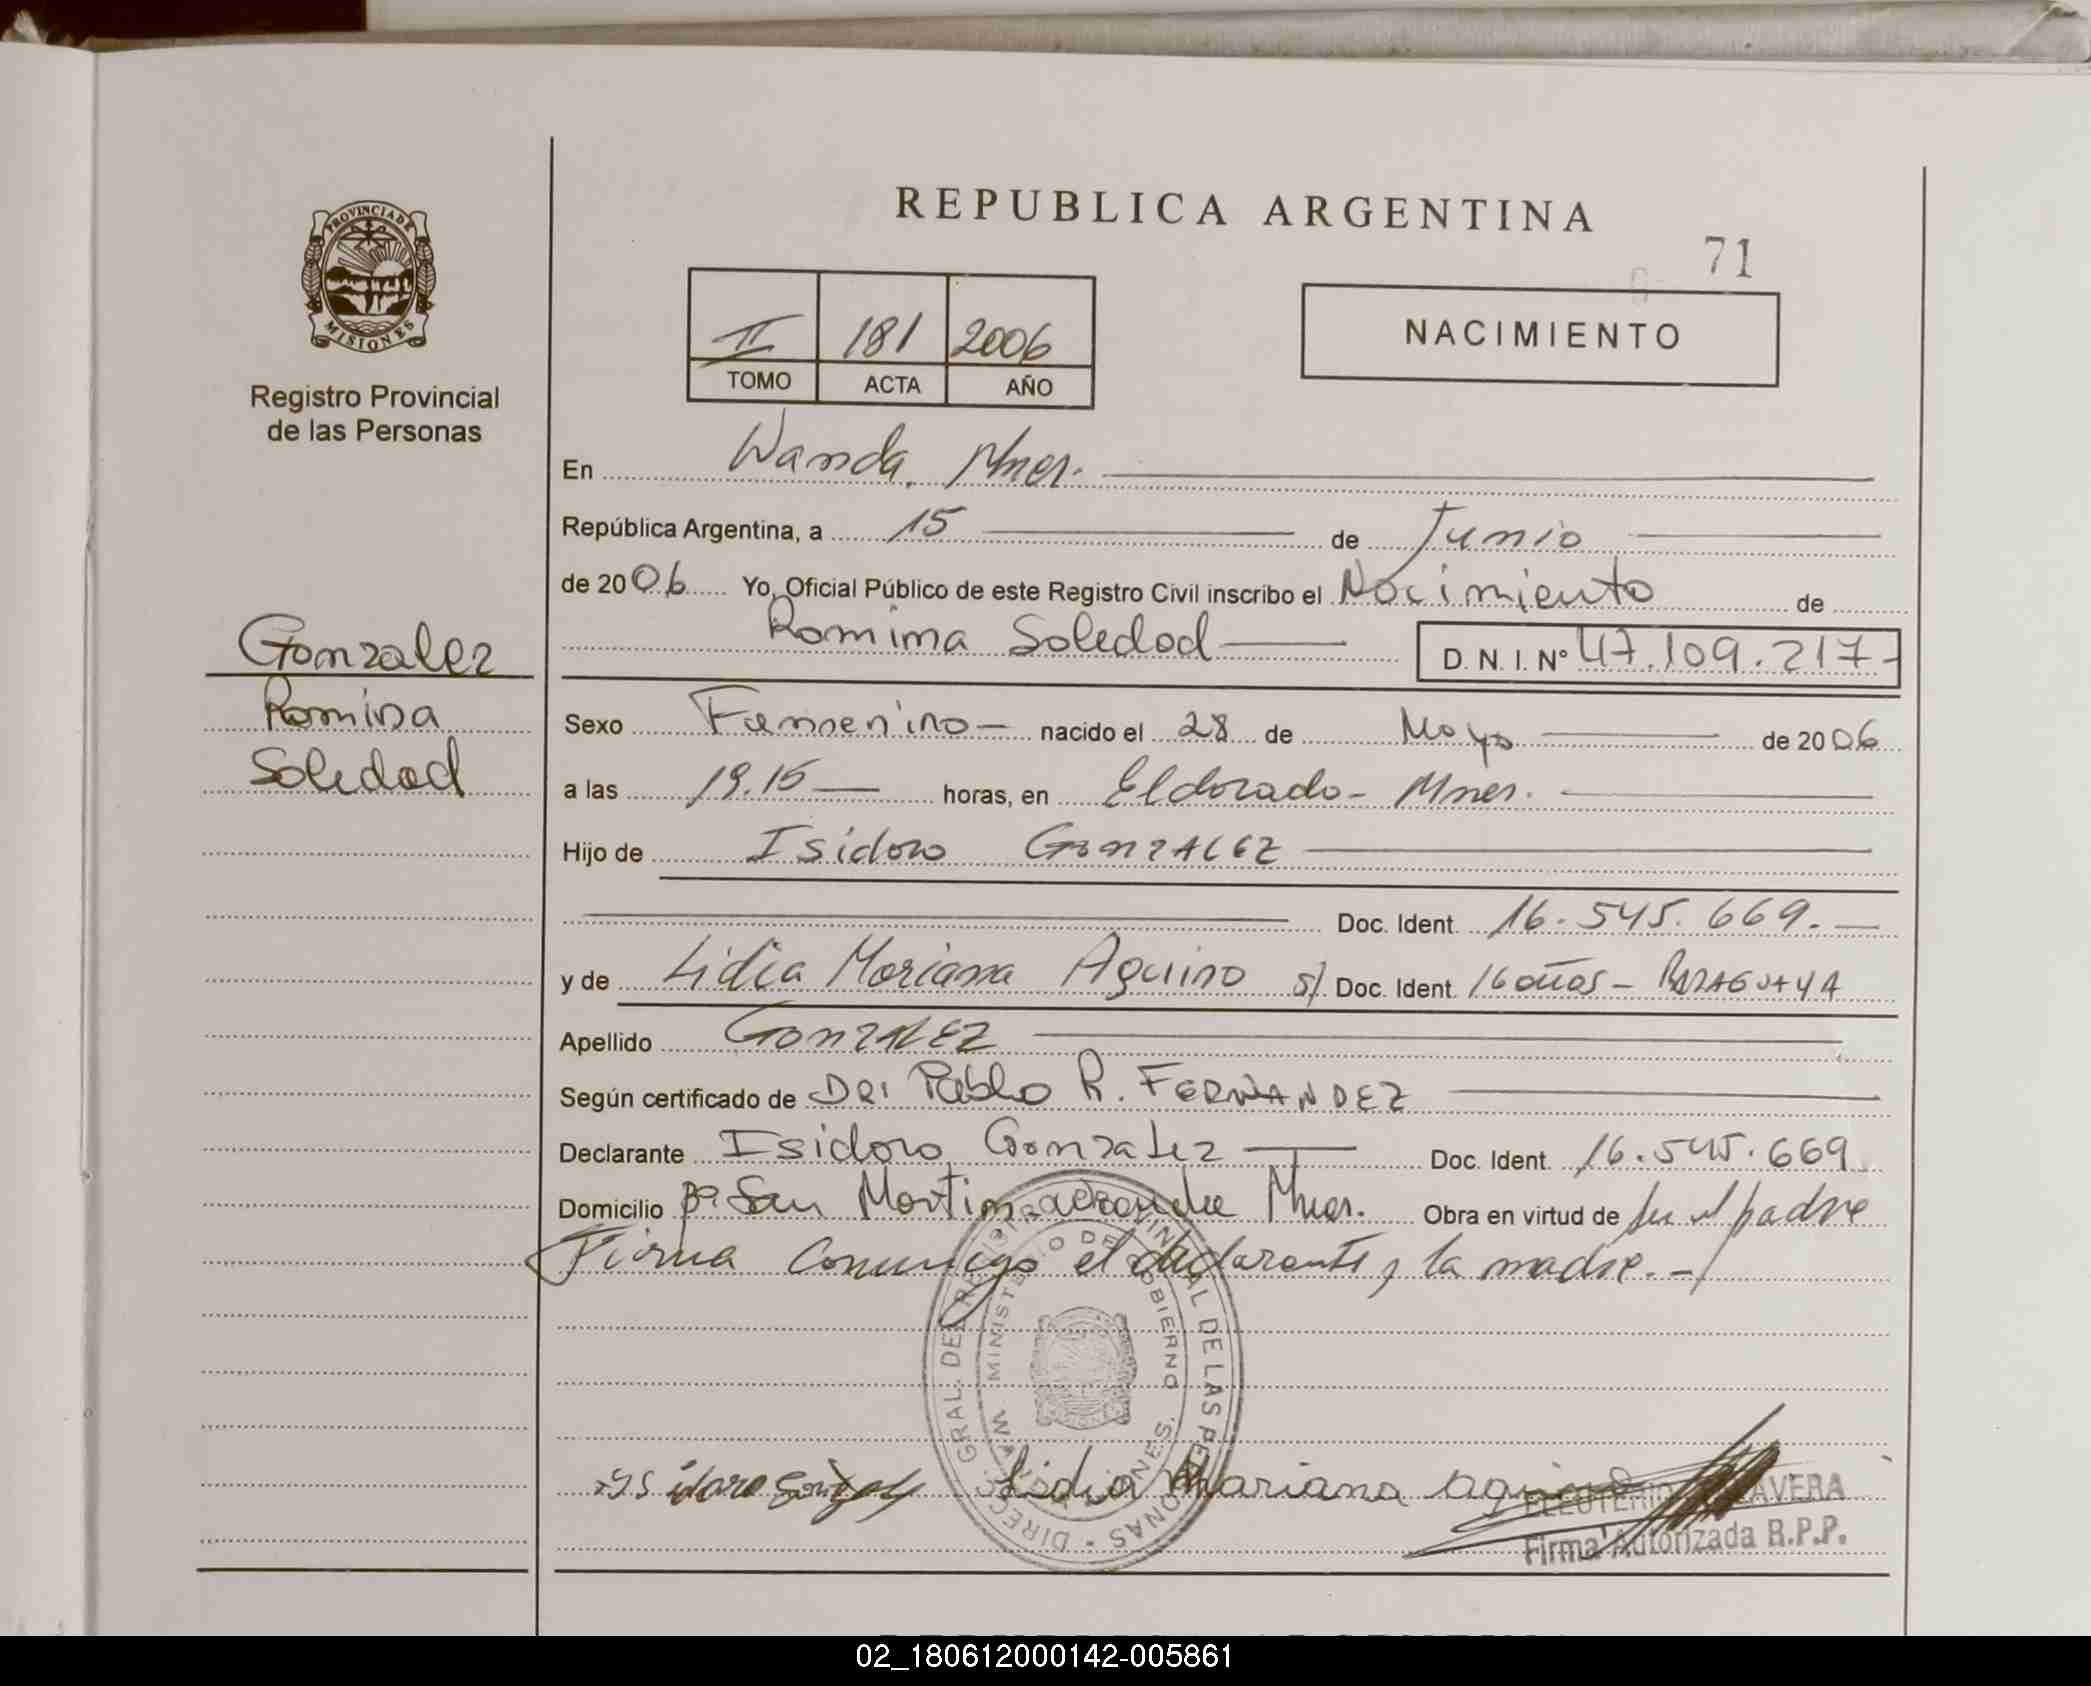 REPUBLICA ARGENTINA
71
PROVINCIA DE
MISIONES
Registro Provincial
de las Personas
II 181 2006
TOMO ACTA AÑO
NACIMIENTO
En Wanda. Mnes.
República Argentina, a 15 de Junio
de 2006 Yo, Oficial Público de este Registro Civil inscribo el Nacimiento de
Romina Soledad D. N. I. Nº 47.109.217-
Gonzalez
Romina
Soledad
Sexo Femenino nacido el 28 de Mayo de 2006
a las 19.15 horas, en Eldorado - Mnes.
Hijo de Isidoro GONZALEZ
Doc. Ident. 16.545.669.
y de Lidia Mariana Aquino s/ Doc. Ident. 16 años - PARAGUAYA
Apellido GONZALEZ
Según certificado de DR: Pablo R. FERNANDEZ
Declarante Isidoro Gonzalez Doc. Ident. 16.545.669
Domicilio Bº San Martin Mnes. Obra en virtud de ser el padre
Firma conmigo el declarante y la madre.-
DIREC. GRAL. DEL REGISTRO PROVINCIAL DE LAS PERSONAS
MINISTERIO DE GOBIERNO
WANDA MISIONES
Isidoro Gonzalez Lidia Mariana Aquino
ELEUTERIO
Firma Autorizada R.P.P.
02_180612000142-005861